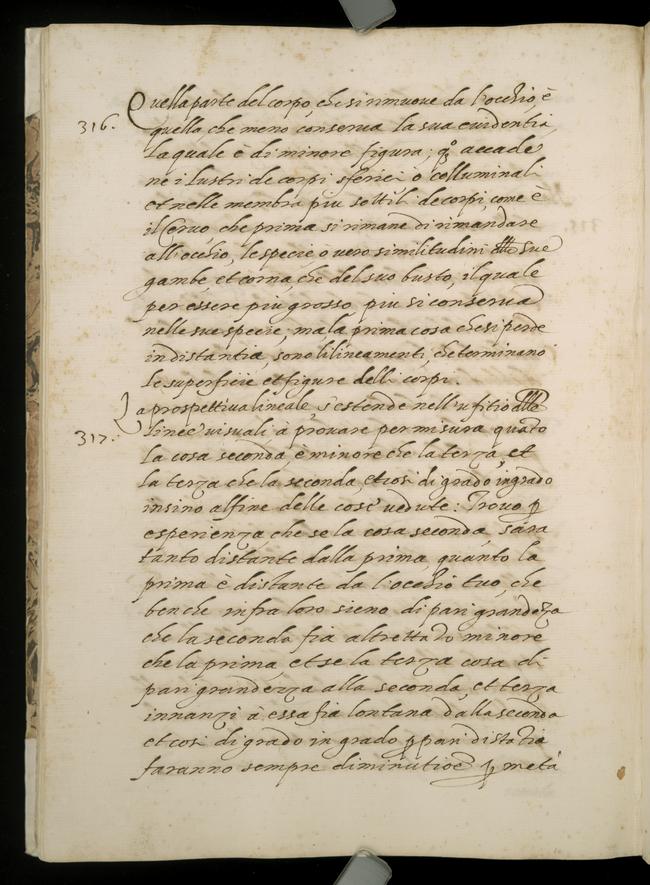 Quella parte del corpo, che si rimuove da l'occhio, è
316. quella che meno conserva la sua evidentia,
la quale è di minore figura; q̃o accade
ne i lustri de corpi sferici o colluminali
et nelle membra piu sottili de corpi, come è
il Cervo, che prima si rimane di rimandare
all'occhio, le specie o vero similitudini delle sue
gambe, et corna, che del suo busto, il quale
per essere più grosso, piu si conserva
nelle sue specie; ma la prima cosa che si perde
in distantia, sono li lineamenti, che terminano
le superficie et figure delli corpi.
La prospettiva lineale, s'estende nell'ufitio delle
317. linee visuali à provare per misura quãto
la cosa seconda, è minore che la terza, et
la terza che la seconda, et cosi di grado in grado
insino al fine delle cose vedute: Trovo p
esperienza, che se la cosa seconda, sara
tanto distante dalla prima, quanto la
prima è distante da l'occhio tuo, che
benche infra loro sieno di pari grandezza
che la seconda fia altrettãdo minore
che la prima, et se la terza cosa di
pari grandezza alla seconda, et terza
innanzi à essa fia lontana dalla seconda
et cosi di grado in grado p pari distãtia
faranno sempre diminutioẽ p metà